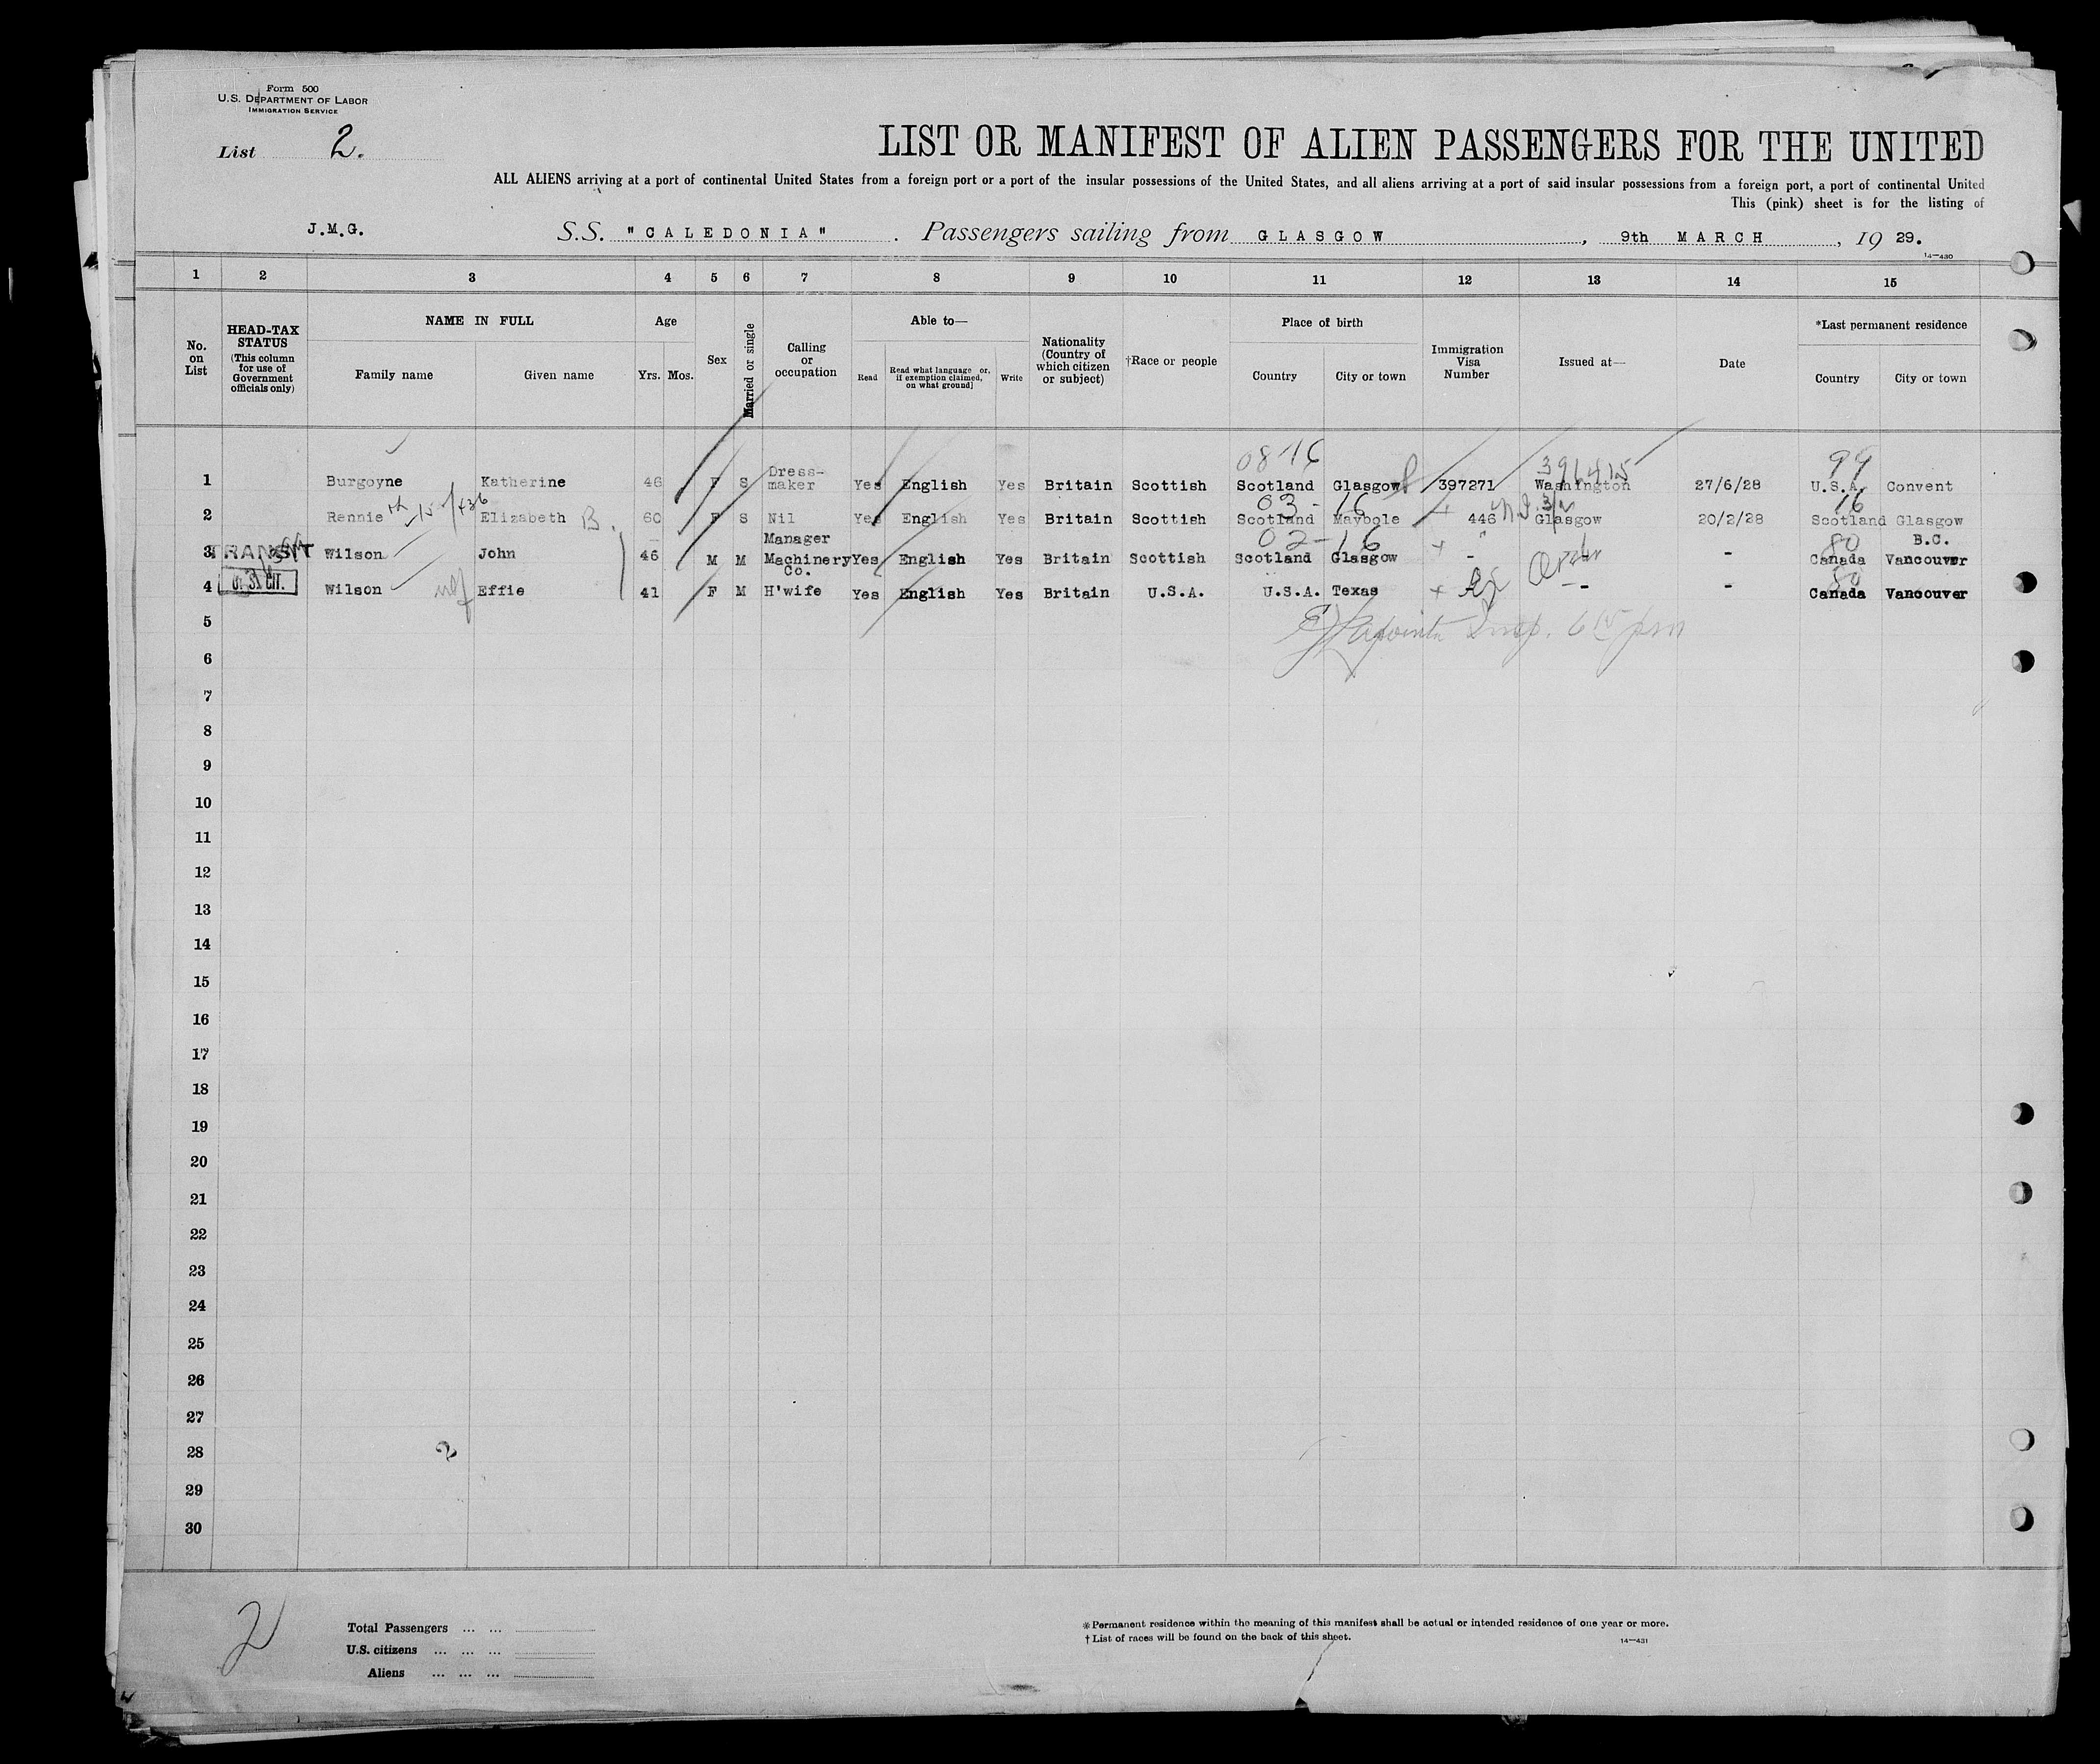 Form 500
U.S. DEPARTMENT OF LABOR
IMMIGRATION SERVICE
List 2.
LIST OR MANIFEST OF ALIEN PASSENGERS FOR THE UNITED
ALL ALIENS arriving at a port of continental United States from a foreign port or a port of the insular possessions of the United States, and all aliens arriving at a port of said insular possessions from a foreign port, a port of continental United
This (pink) sheet is for the listing of
J.M.G. S.S. "CALEDONIA". Passengers sailing from GLASGOW, 9th MARCH, 19 29.
14—430
1 2 3 4 5 6 7 8 9 10 11 12 13 14 15
No. on List
HEAD-TAX STATUS (This column for use of Government officials only)
NAME IN FULL
Family name Given name
Age
Yrs. Mos.
Sex
Married or single
Calling or occupation
Able to—
Read Read what language or, if exemption claimed, on what ground] Write
Nationality (Country of which citizen or subject)
†Race or people
Place of birth
Country City or town
Immigration Visa Number
Issued at—
Date
*Last permanent residence
Country City or town
08 16 391415 99
1 Burgoyne Katherine 46 F S Dress-maker Yes English Yes Britain Scottish Scotland Glasgow 397271 Washington 27/6/28 U.S.A. Convent
03-16 16
2 Rennie Elizabeth B. 60 F S Nil Yes English Yes Britain Scottish Scotland Maybole 446 Glasgow 20/2/28 Scotland Glasgow
02-16 80
3 TRANSIT Wilson John 46 M M Manager Machinery Co. Yes English Yes Britain Scottish Scotland Glasgow - - Canada B.C. Vancouver
80
4 U.S. CIT. Wilson Effie 41 F M H'wife Yes English Yes Britain U.S.A. U.S.A. Texas - - Canada Vancouver
5 Insp. 6 15 pm
6
7
8
9
10
11
12
13
14
15
16
17
18
19
20
21
22
23
24
25
26
27
28 2
29
30
2
Total Passengers ... ...
U.S. citizens ... ... ...
Aliens ... ... ...
* Permanent residence within the meaning of this manifest shall be actual or intended residence of one year or more.
† List of races will be found on the back of this sheet.
14—431